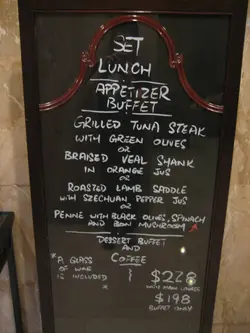 SET
LUNCH
APPETIZER
BUFFET
GRILLED TUNA STEAK
WITH GREEN OLIVES
OR
BRAISED VEAL SHANK
IN ORANGE JUS
OR
ROASTED LAMB SADDLE
WITH SZECHUAN PEPPER JUS
OR
PENNE WITH BLACK OLIVES, SPINACH
AND BON MUSHROOM
DESSERT BUFFET
AND
COFFEE
* A GLASS
OF WINE
IS INCLUDED
*
$228
WITH MAIN COURSE
$198
BUFFET ONLY